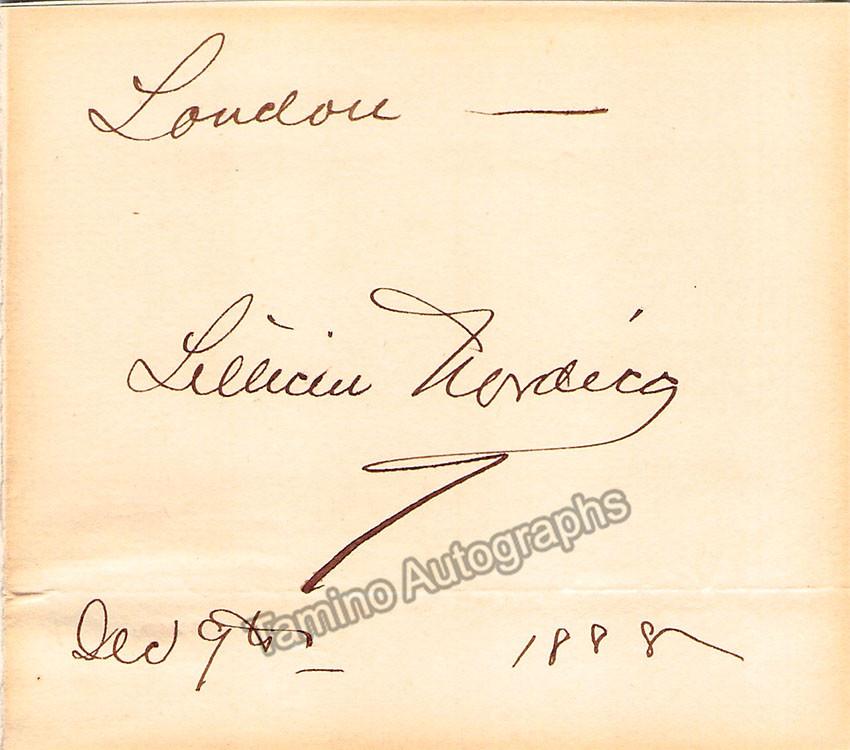 London —
Lillian Nordica
Tamino Autographs
Dec 9th 1888